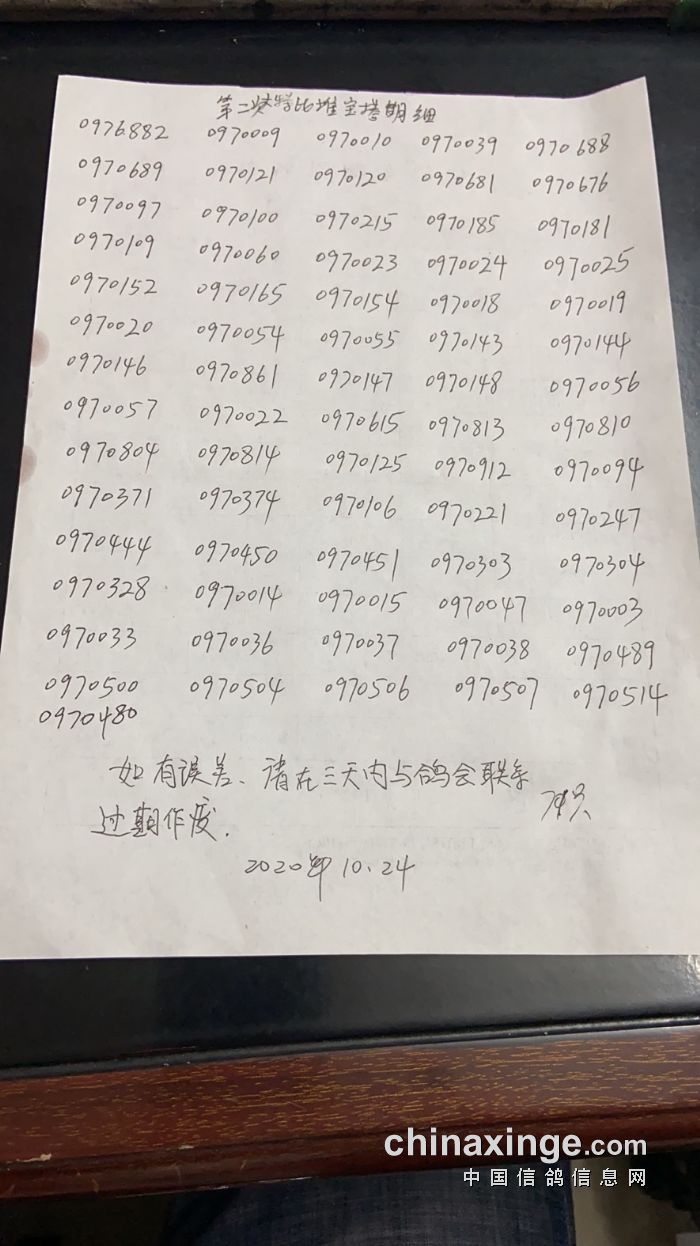 第二次特比堆宝塔明细
0976882 0970009 0970010 0970039 0970688
0970689 0970121 0970120 0970681 0970676
0970097 0970100 0970215 0970185 0970181
0970109 0970060 0970023 0970024 0970025
0970152 0970165 0970154 0970018 0970019
0970020 0970054 0970055 0970143 0970144
0970146 0970861 0970147 0970148 0970056
0970057 0970022 0970615 0970813 0970810
0970804 0970814 0970125 0970912 0970094
0970371 0970374 0970106 0970221 0970247
0970444 0970450 0970451 0970303 0970304
0970328 0970014 0970015 0970047 0970003
0970033 0970036 0970037 0970038 0970489
0970500 0970504 0970506 0970507 0970514
0970480
如有误差、请在三天内与鸽会联系
过期作废.
2020年10.24
chinaxinge.com
中国信鸽信息网